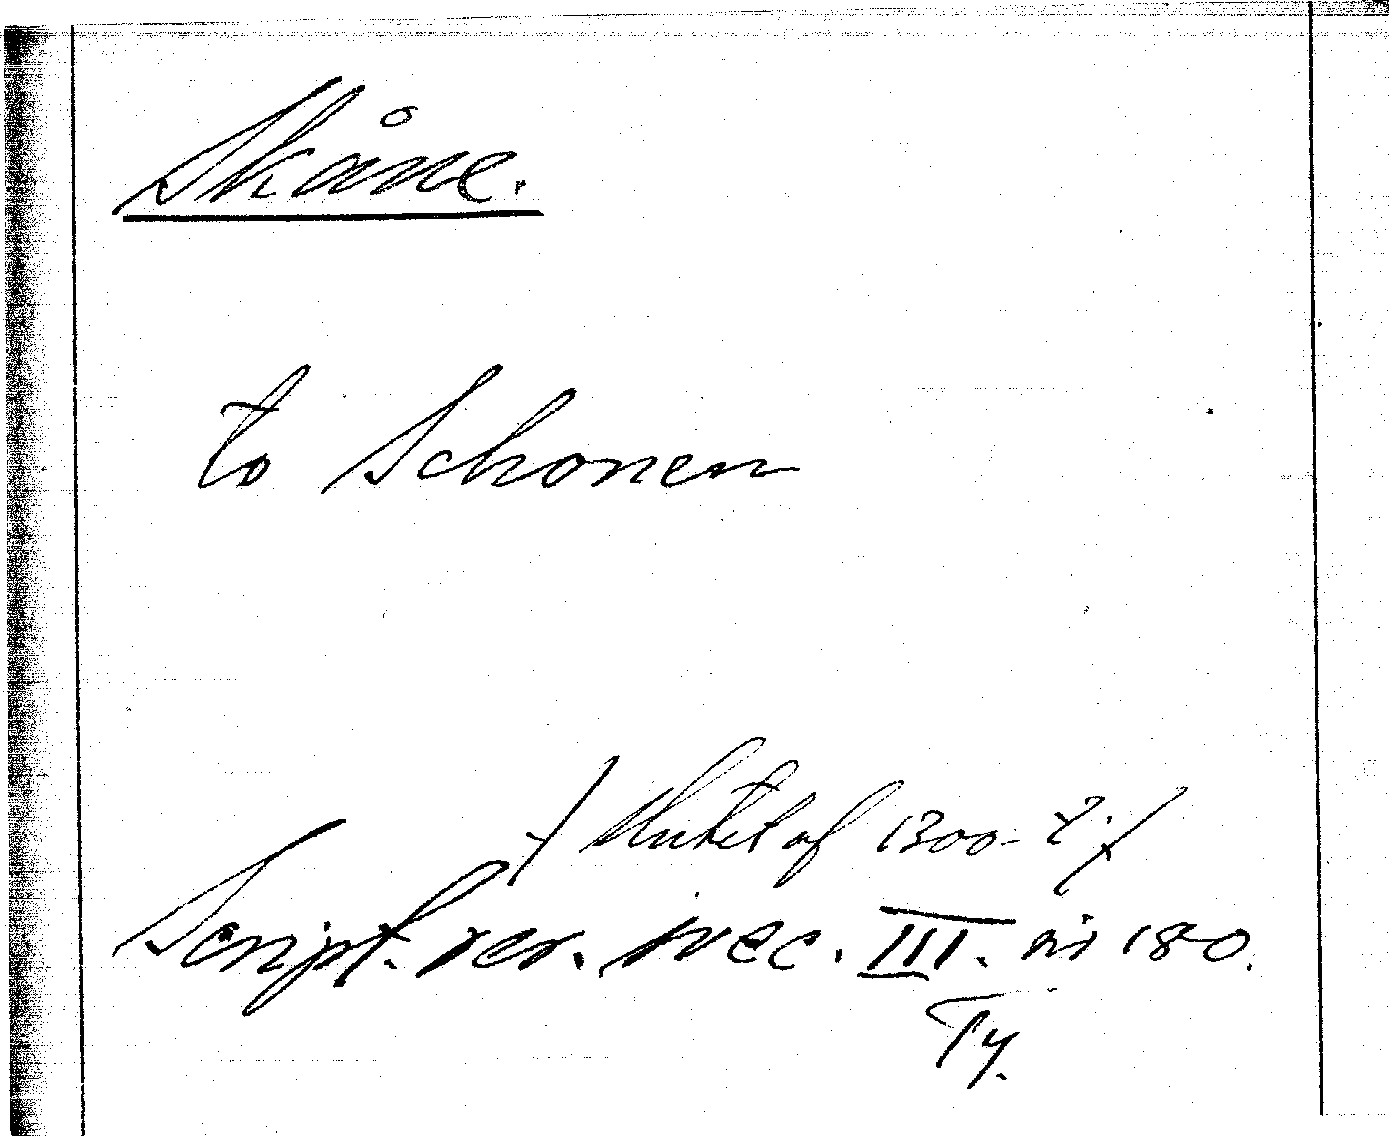 Skåne.
to Schonen
/ slutet af 1300-t./
Script. rer. svec. III. sid 180.
Ty.